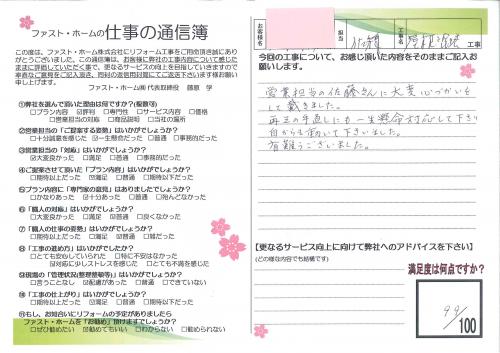 ファスト・ホームの仕事の通信簿
この度は、ファスト・ホーム株式会社にリフォーム工事をご用命頂き誠にあり
がとうございました。この通信簿は、お客様に弊社の工事内容について感じた
ままに評価していただく事で、更なるサービスの向上を目指していきますので
率直なご意見をご記入頂き、同封の返信用封筒にてご返送下さいます様お願い
申し上げます。
ファスト・ホーム㈱ 代表取締役 藤原 学
①弊社を選んで頂いた理由は何ですか？(複数可)
□プラン内容 ☑評判 □専門性 □サービス内容 □価格
□営業担当の対応 □商品説明 □当社の場所
②営業担当の「ご提案する姿勢」はいかがでしょうか？
□十分誠意を感じた ☑一生懸命だった □普通 □事務的
③営業担当の「対応」はいかがでしょうか？
☑大変良かった □満足 □普通 □事務的だった
④ご提案させて頂いた「プラン内容」はいかがでしょうか？
□期待以上だった ☑満足 □普通 □期待以下だった
⑤プラン内容に「専門家の意見」はありましたでしょうか？
□かなりあった ☑十分あった □普通 □殆んどなかった
⑥「職人の対応」はいかがでしょうか？
□大変良かった □満足 ☑普通 □良くなかった
⑦「職人の仕事の姿勢」はいかがでしょうか？
□期待以上だった □満足 ☑普通 □雑だった
⑧「工事の進め方」はいかがでしたでしょうか？
□とても安心していられた □特に不安はなかった
☑対応に少しストレスを感じた □とても不満を感じた
⑨現場の「管理状況(整理整頓等)」はいかがでしょうか？
□言うことなし ☑配慮があった □普通 □できていない
⑩「工事の仕上がり」はいかがでしょうか？
□期待以上だった ☑満足 □普通 □期待以下だった
⑪もし、お知合いにリフォームの予定がありましたら
ファスト・ホームを「お勧め」頂けますでしょうか？
□ぜひ勧めたい ☑勧めてもいい □わからない □勧められない
お客様名
担当
佐藤
工事名
工事
今回の工事について、お感じ頂いた内容をそのままご記入お
願いします。
営業担当の佐藤さんに大変心づかいを
して戴きました。
再三の手直しにも一生懸命対応して下さり
自からも動いて下さいました。
有難うございました。
【更なるサービス向上に向けて弊社へのアドバイスを下さい】
(どの様な内容でも結構です)
満足度は何点ですか？
99
100